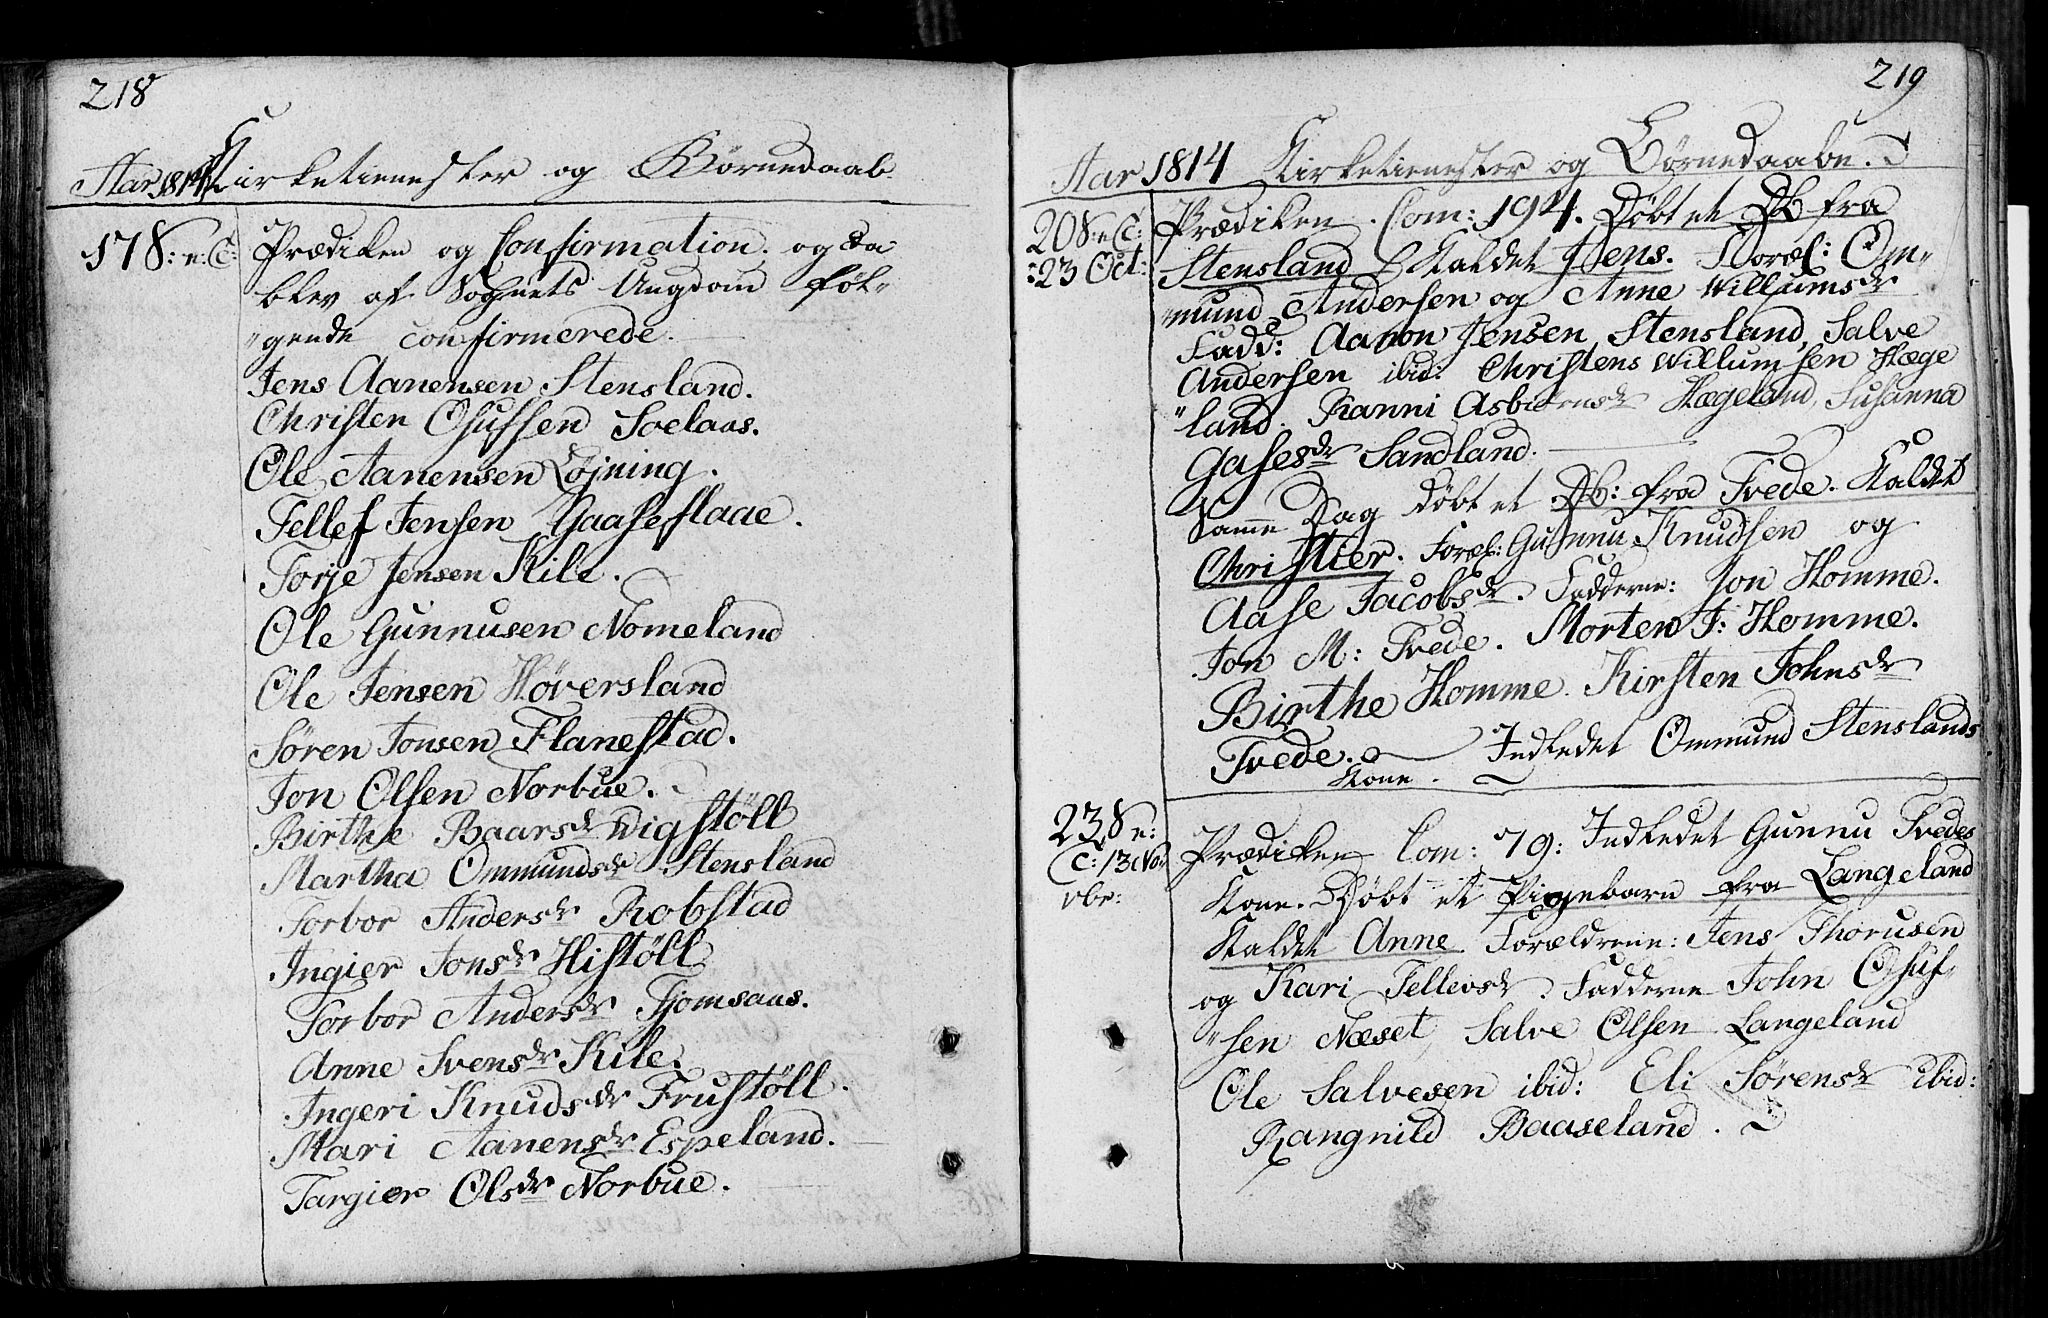 218
Aar 1814 Kirketienester og Börnedaab
17 S: n: C:
Prædiken og Confirmation. og da
blev af Sognets Ungdom föl-
"gende confirmerede.
Jens Aanensen Stensland.
Christen Osufsen Soelaas.
Ole Aanensen Löjning.
Tellef Jensen Gaaseflaae.
Torje Jensen Kile.
Ole Gunnusen Nomeland
Ole Jensen Höversland
Sören Jonsen Flanestad.
Jon Olsen Norbue.
Birthe Baarsdr Wigstöll
Martha Ommundsdr Stensland
Torbor Andersdr Robstad
Ingier Jonsdr Histöll
Torbor Andersdr Tjomsaas.
Anne Svensdr Kile.
Ingeri Knudsdr Frustöll.
Mari Aanensdr Espeland.
Targier Olsdr Norbue.
219
Aar 1814 Kirketienester og Börnedaabe.
20 S: n: C:
:23 Oct:
Prædiken. Com: 194. Döbt et Db fra
Stensland Kaldet Jens. Foræl: Om-
"mund Andersen og Anne Willumsdr
Fadd: Aanon Jensen Stensland, Salve
Andersen ibid: Christens Willumsen Hæge
"land. Ranni Asbiörnsdr Hægeland, Susanna
Gasesdr Sandland.
Samme Dag döbt et Db: fra Tvede. Kaldet
Christier. Foræl: Gunnu Knudsen og
Aase Jacobsdr. Fadderne: Jon Homme.
Jon M: Tvede. Morten J: Homme.
Birthe Homme. Kirsten Johnsdr
Tvede. Indledet Ommund Stenslands
Kone.
23 S n:
C: 13 No
vbr:
Prædiken Com: 79: Indledet Gunnu Tvedes
Kone. Döbt et Pigebarn fra Langeland
Kaldet Anne Forældrene: Jens Thorusen
og Kari Tellevsdr. Fadderne John Osuf-
"sen Næset, Salve Olsen Langeland
Ole Salvesen ibid: Eli Sörensdr ibid:
Rangnild Baaseland.